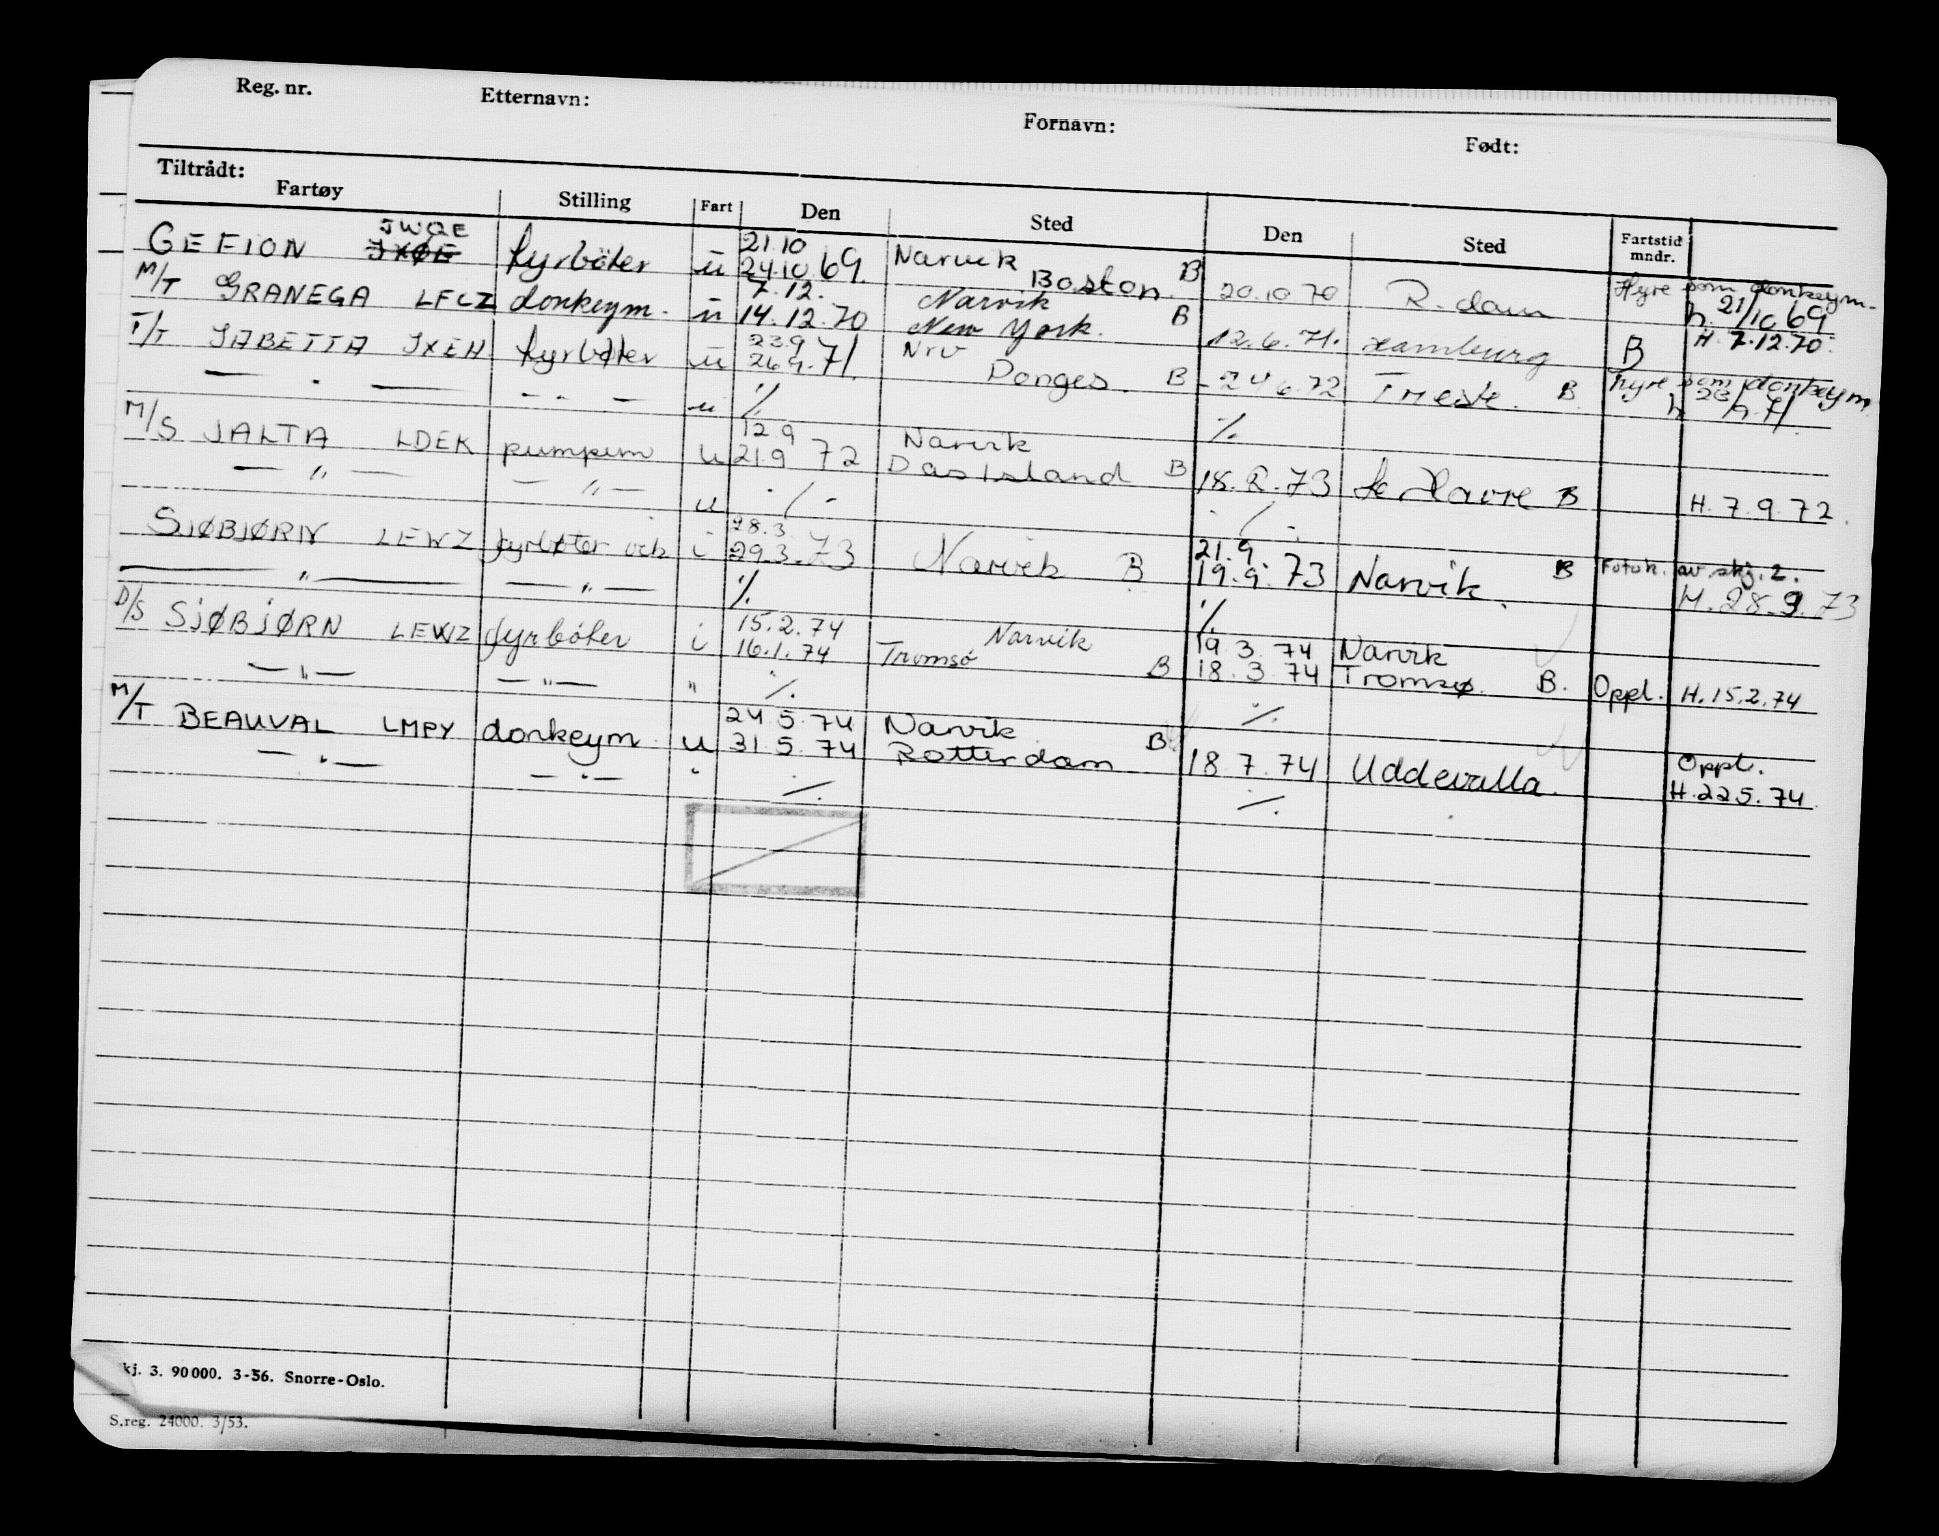 Reg. nr. Etternavn: Fornavn: Født:
Tiltrådt:
Fartøy Stilling Fart Den Sted Den Sted Fartstid mndr.
JWQE 21.10 Narvik Hyre som donkeym.
GEFION fyrbøter u 24.10.69. Boston. B 20.10.70 R.dam h. 21/10 69
7.12. Narvik H. 7.12.70.
M/T GRANEGA LFCZ donkeym. u 14.12.70 New York. B 12.6.71. Hamburg B
23.9 Nrv hyre som donkeym
T/T JABETTA JXEH fyrbøter u 26.9.71. Donges. B 24.6.72 Trieste. B h 23/9.71.
— " — — " — u ·/. ·/.
12.9 Narvik
M/S JALTA LDEK pumpem u 21.9 72 Das Island B 18.2.73 Le Havre B H. 7.9.72.
— " — — " — u ·/. ·/.
28.3 21.9. Fotok. av skj. 2.
SJØBJØRN LEWZ fyrbøter vik i 29.3.73 Narvik B 19.9.73 Narvik. B H. 28.9.73
— " — — " — ·/. ·/.
15.2.74 Narvik 19.3.74 Narvik
D/S SJØBJØRN LEWZ fyrbøter i 16.1.74 Tromsø B 18.3.74 Tromsø. B. Oppl. H.15.2.74
— " — — " — " ·/. ·/.
24.5.74 Narvik Oppl.
M/T BEAUVAL LMPY donkeym u 31.5.74 Rotterdam B 18.7.74 Uddevalla. H.22.5.74
— " — — " — " ·/. ·/.
kj. 3. 90000. 3-56. Snorre-Oslo.
S.reg. 24000. 3/53.